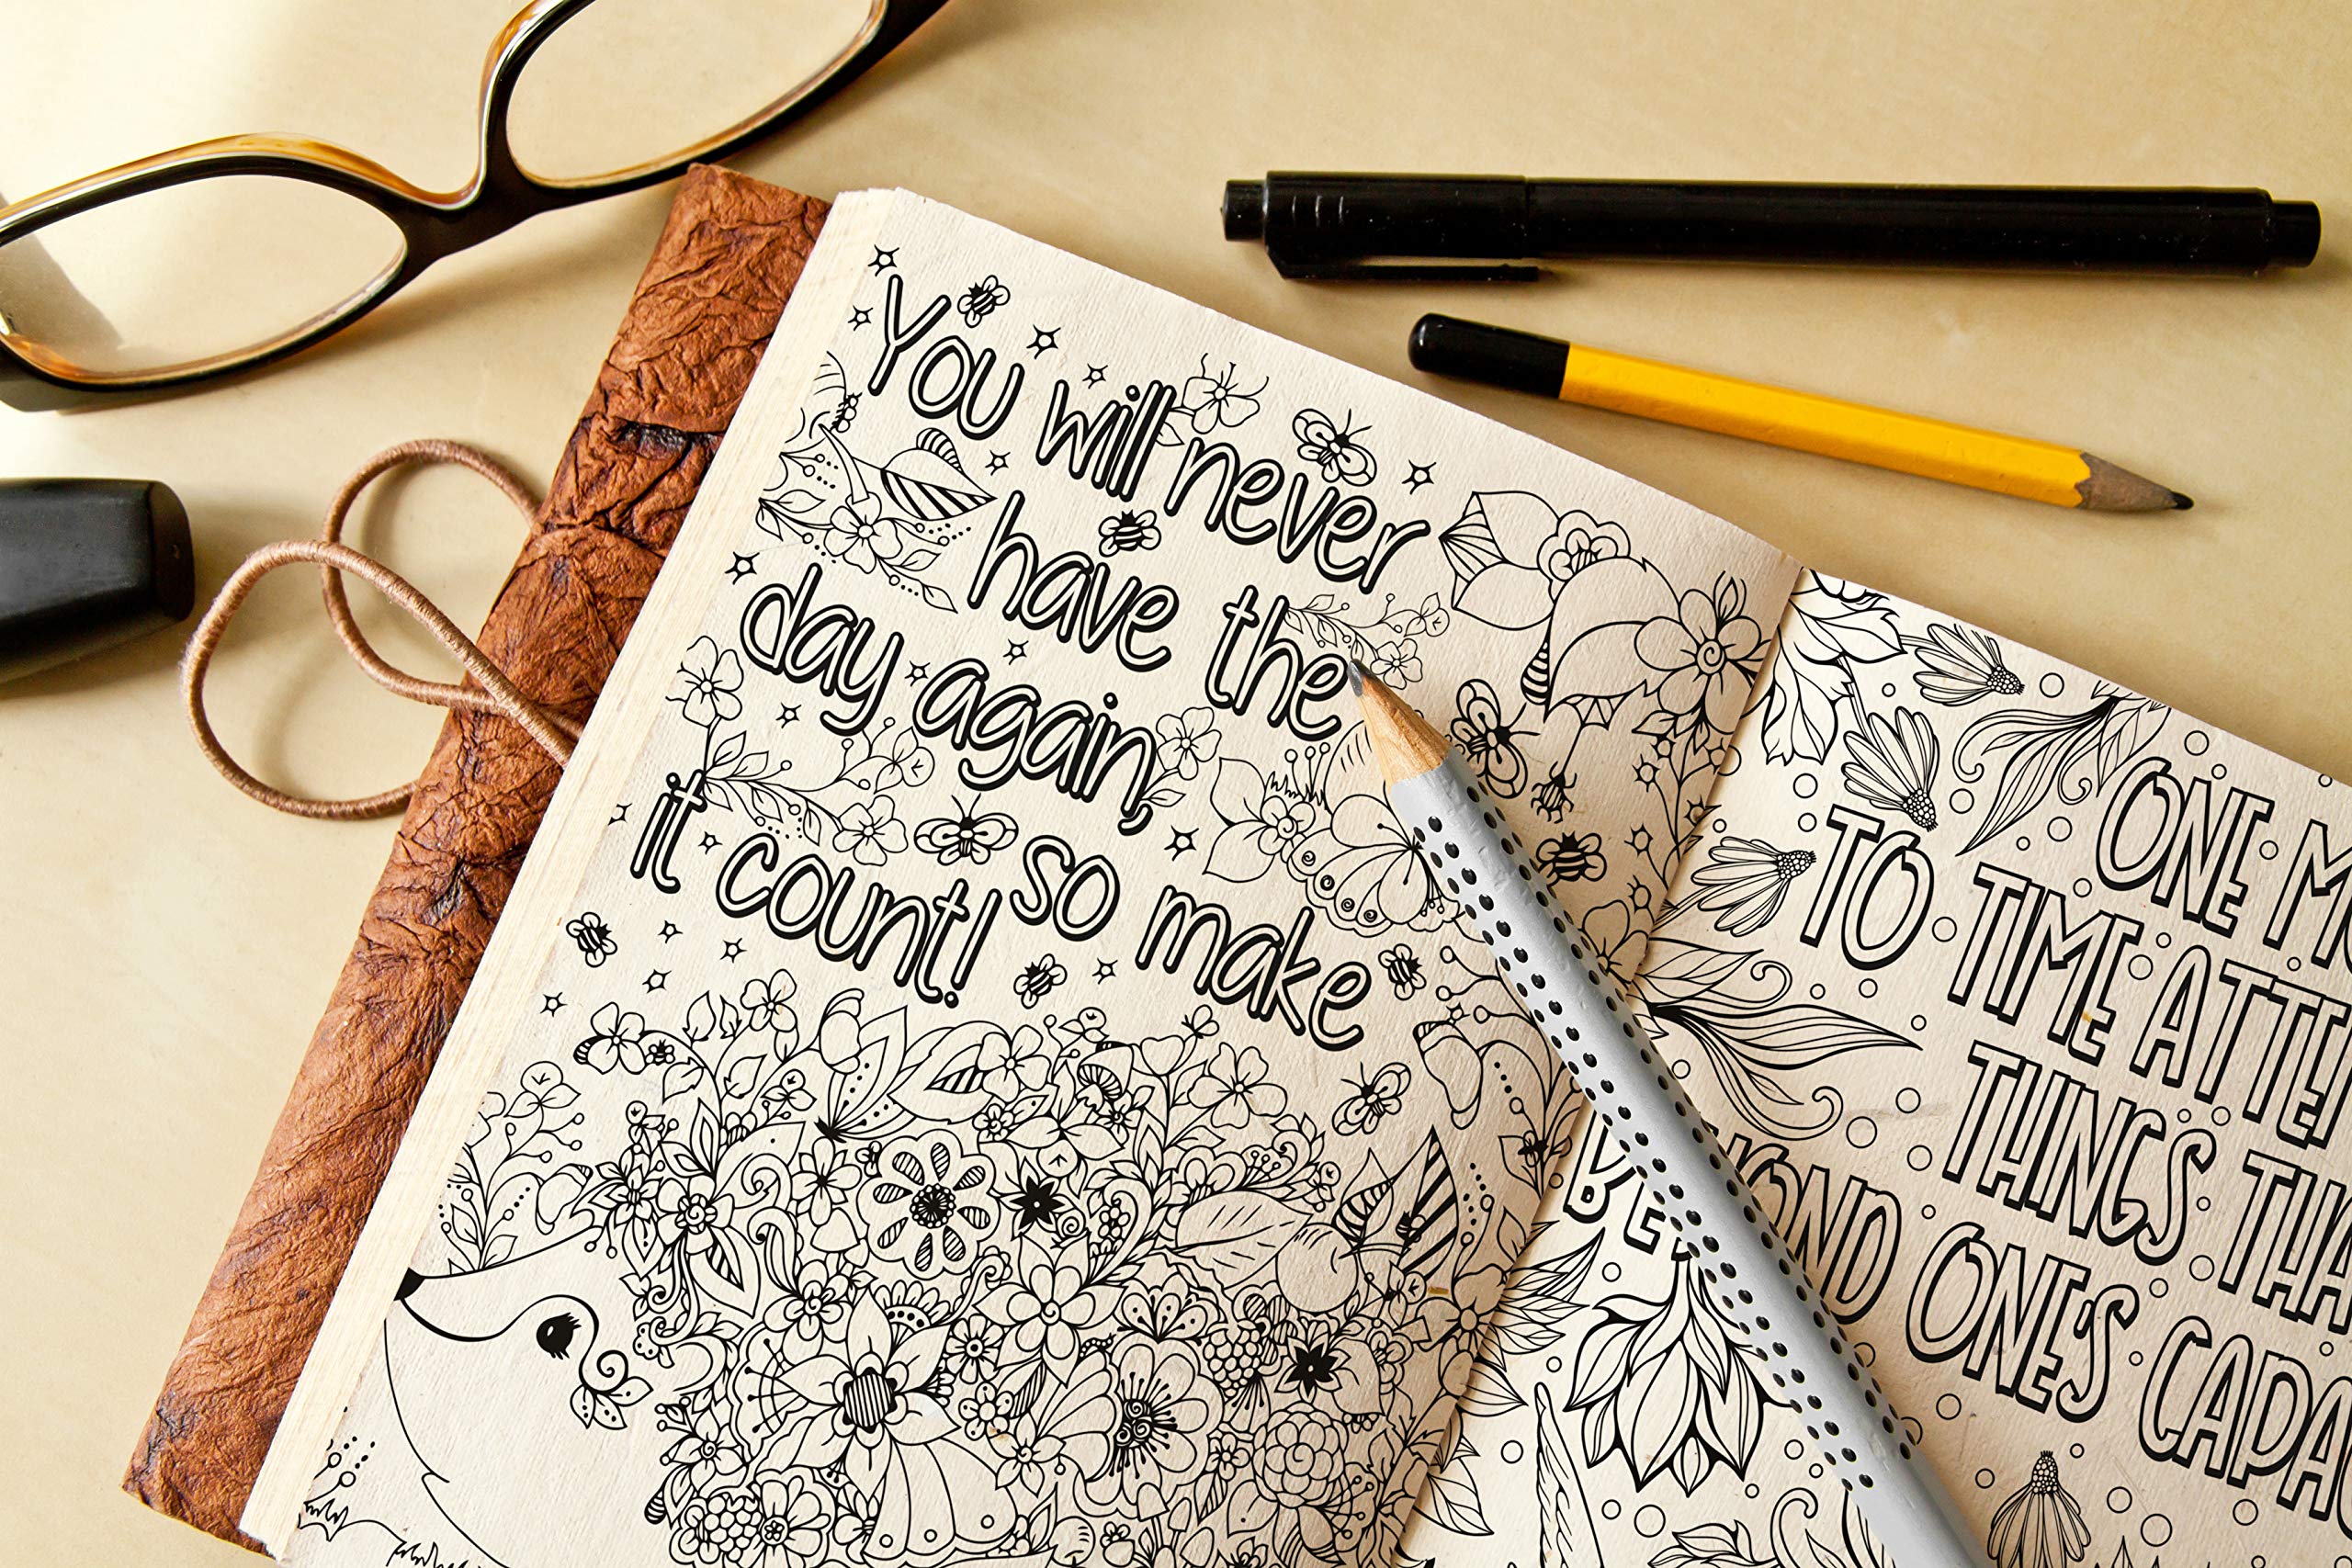 You will never
have the
day again,
so make
it count!
ONE
TO TIME
THINGS
BEYOND ONE'S